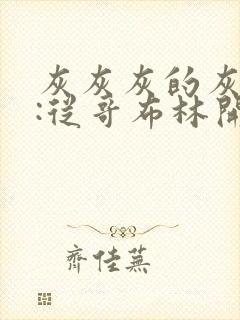 灰灰灰的灰
:從哥布林開
齊佳蕪